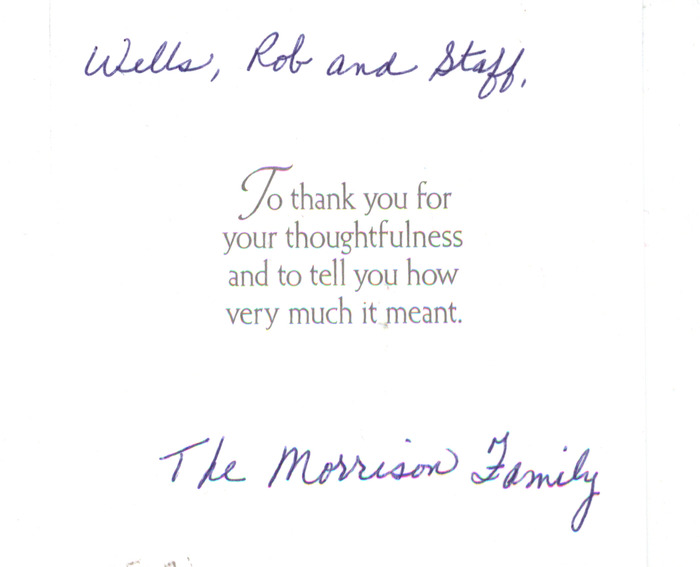 Wells, Rob and Staff,
To thank you for
your thoughtfulness
and to tell you how
very much it meant.
The Morrison Family